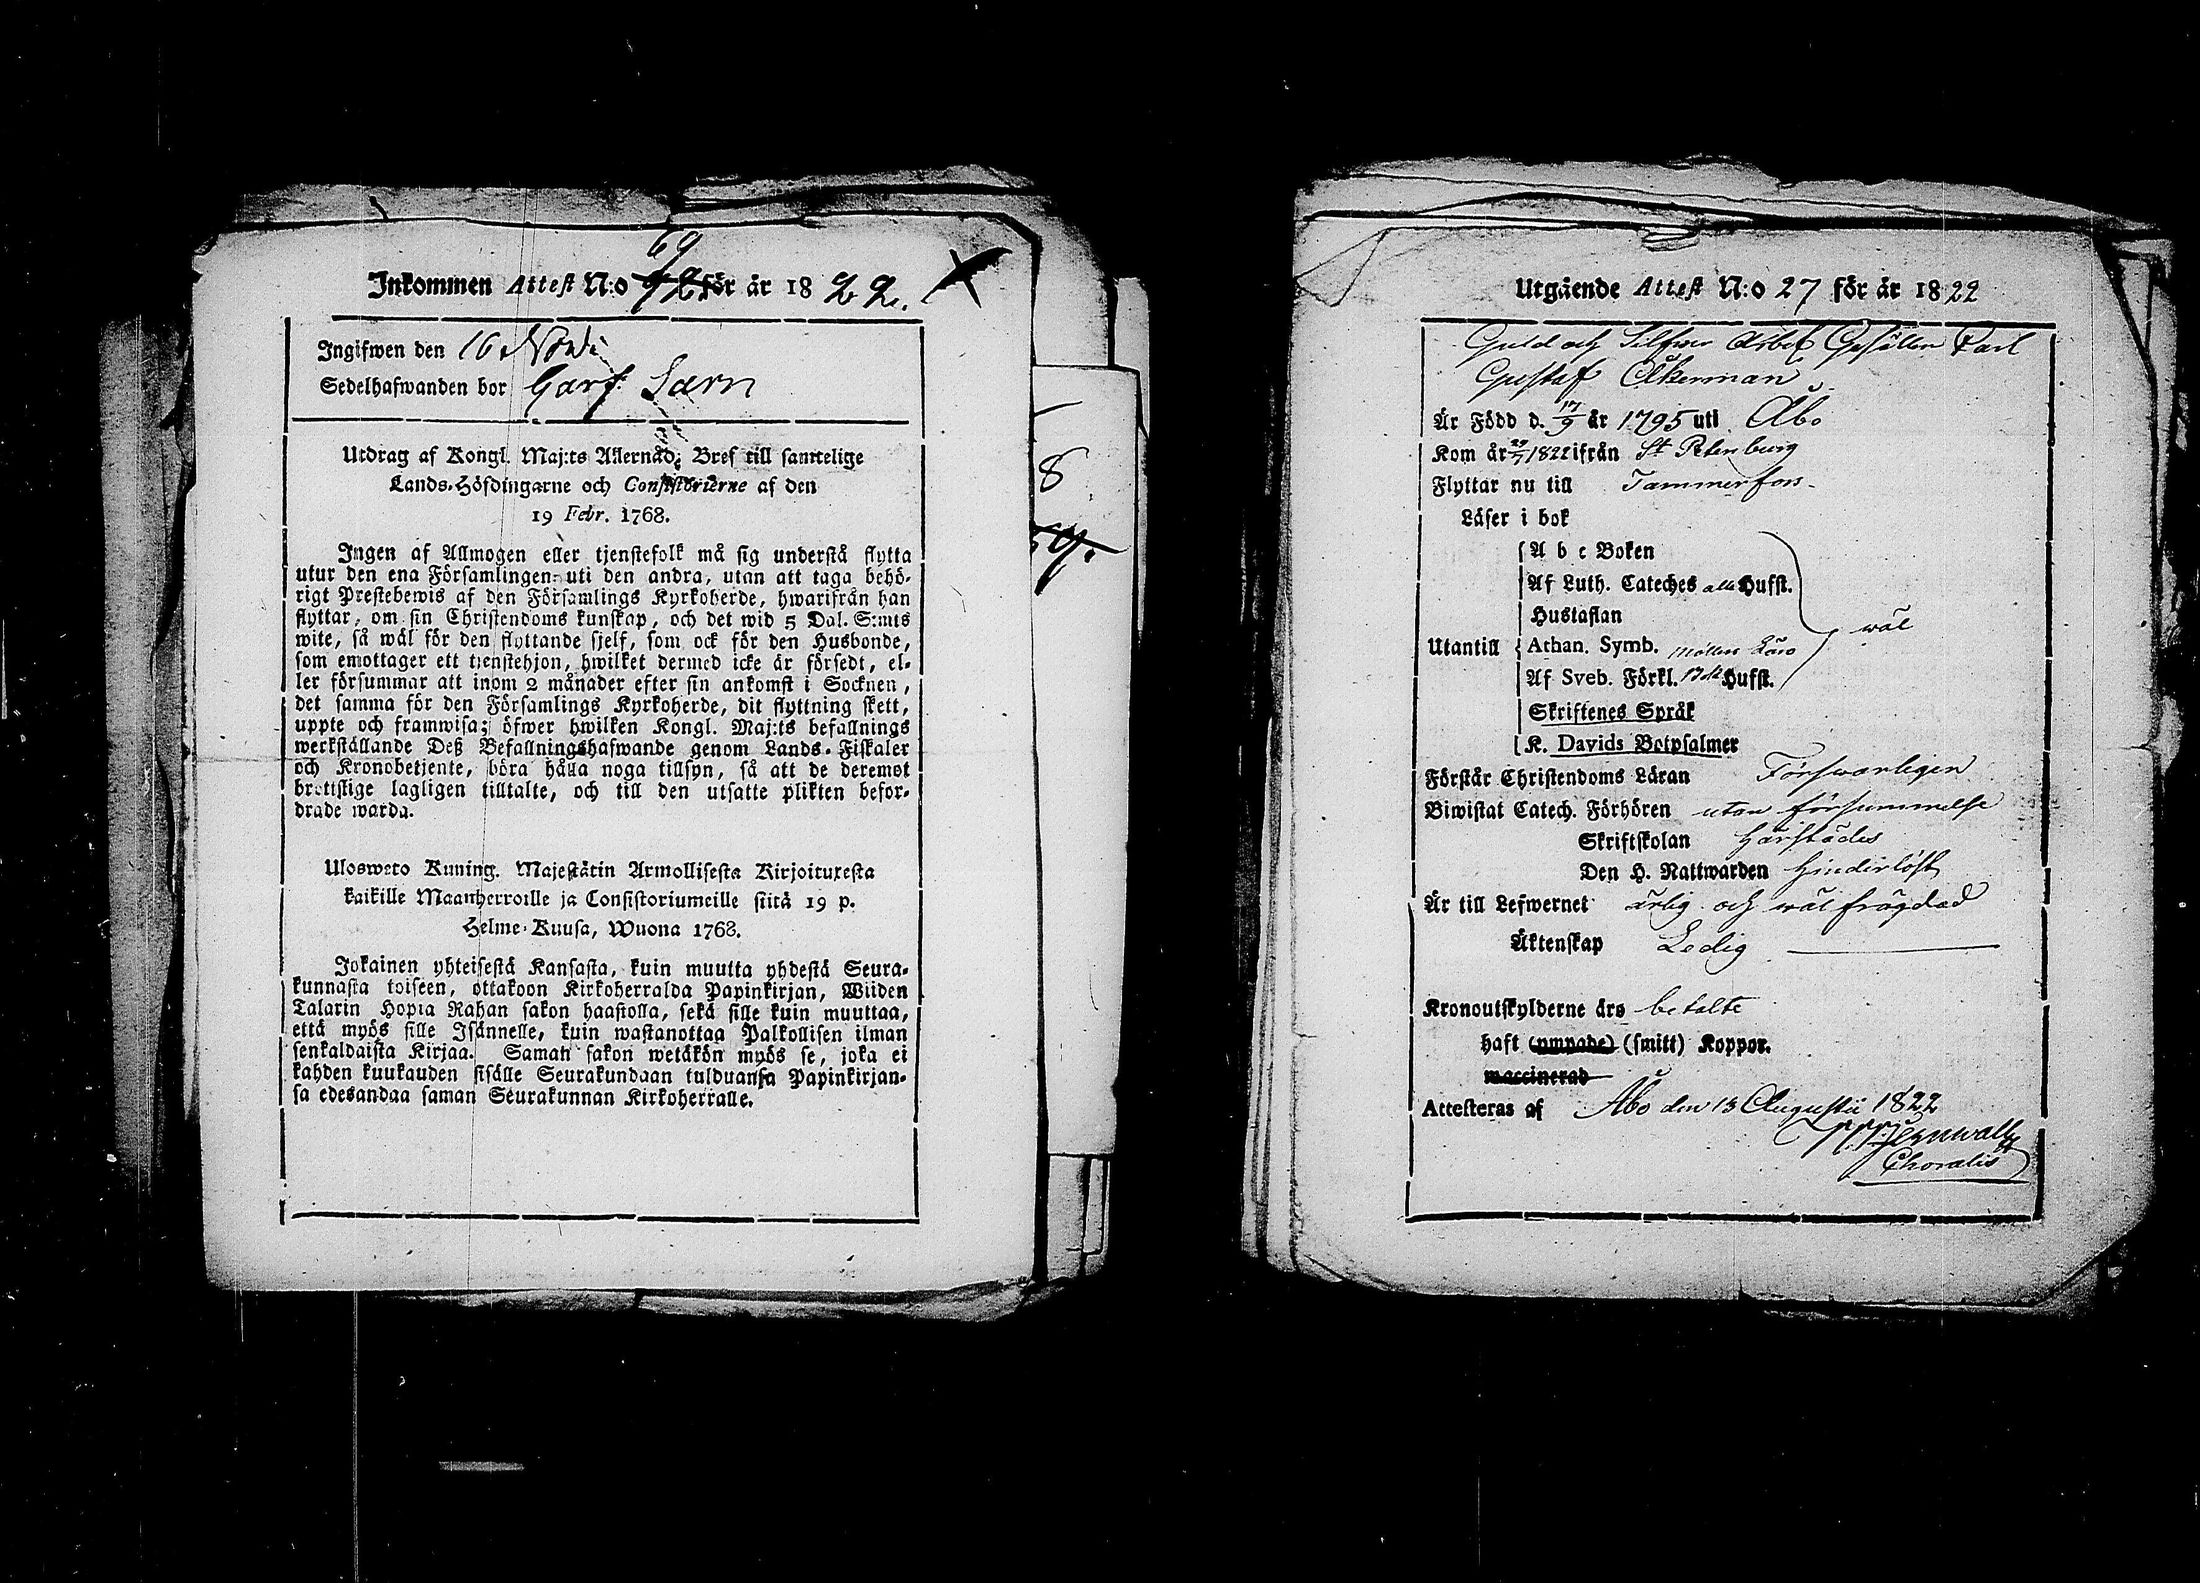 69
Inkommen Attest N:o för år 1822.
Ingifwen den 16
Sedelhafwanden bor Garf. Särn
Utdrag af Kongl. Maj:ts Allernåd. Bref till samtelige
Lands-Höfdingarne och Consistorierne af den
19 Febr. 1768.
Ingen af Allmogen eller tjenstefolk må sig understå flytta
utur den ena Församlingen uti den andra, utan att taga behö-
rigt Prestebewis af den Församlings Kyrkoherde, hwarifrån han
flyttar, om sin Christendoms kunskap, och det wid 5 Dal. S:mts
wite, så wäl för den flyttande sjelf, som ock för den Husbonde,
som emottager ett tjenstehjon, hwilket dermed icke är försedt, el-
ler försummar att inom 2 månader efter sin ankomst i Socknen,
det samma för den Församlings Kyrkoherde, dit flyttning skett,
uppte och framwisa; öfwer hwilken Kongl. Maj:ts befallnings
werkställande Deß Befallningshafwande genom Lands-Fiskaler
och Kronobetjente, böra hålla noga tillsyn, så att de deremot
brottslige lagligen tilltalte, och till den utsatte plikten befor-
drade warda.
Uloswето Kuning. Majestätin Armollisesta Kirjoituxesta
kaikille Maanherroille ja Consistoriumeille siitä 19 p.
Helme-Kuusa, Wuona 1768.
Jokainen yhteisestä Kansasta, kuin muutta yhdestä Seura-
kunnasta toiseen, ottakoon Kirkoherralda Papinkirjan, Wiiden
Talarin Hopia Rahan sakon haastolla, sekä sille kuin muuttaa,
että myös sille Isännelle, kuin wastanottaa Palkollisen ilman
senkaldaista Kirjaa. Saman sakon wetäkön myös se, joka ei
kahden kuukauden sisälle Seurakundaan tulduansa Papinkirjan-
sa edesandaa saman Seurakunnan Kirkoherralle.
8
Utgående Attest N:o 27 för år 1822
Guld och Silfwer Arbet Gesällen Carl
Gustaf Åkerman
Är Född d. 17/9 år 1795 uti Åbo
Kom år 29/7 1822 ifrån St Petersburg
Flyttar nu till Tammerfors.
Läser i bok
A b c Boken
Af Luth. Cateches alla Hufst.
Hustaflan
Utantill Athan. Symb. wäl
Af Sveb. Förkl. Hufst.
Skriftenes Språk
K. Davids Botpsalmer
Förstår Christendoms Läran Förswarligen
Biwistat Catech. Förhören utan försummelse
Skriftskolan härstädes
Den H. Nattwarden hinderlöst
Är till Lefwernet ärlig och wäl frägdad
Äktenskap Ledig
Kronoutskylderne äro betalte
haft (ympade) (smitt) Koppor.
waccinerad
Attesteras af Åbo den 13 Augustii 1822
Choralis